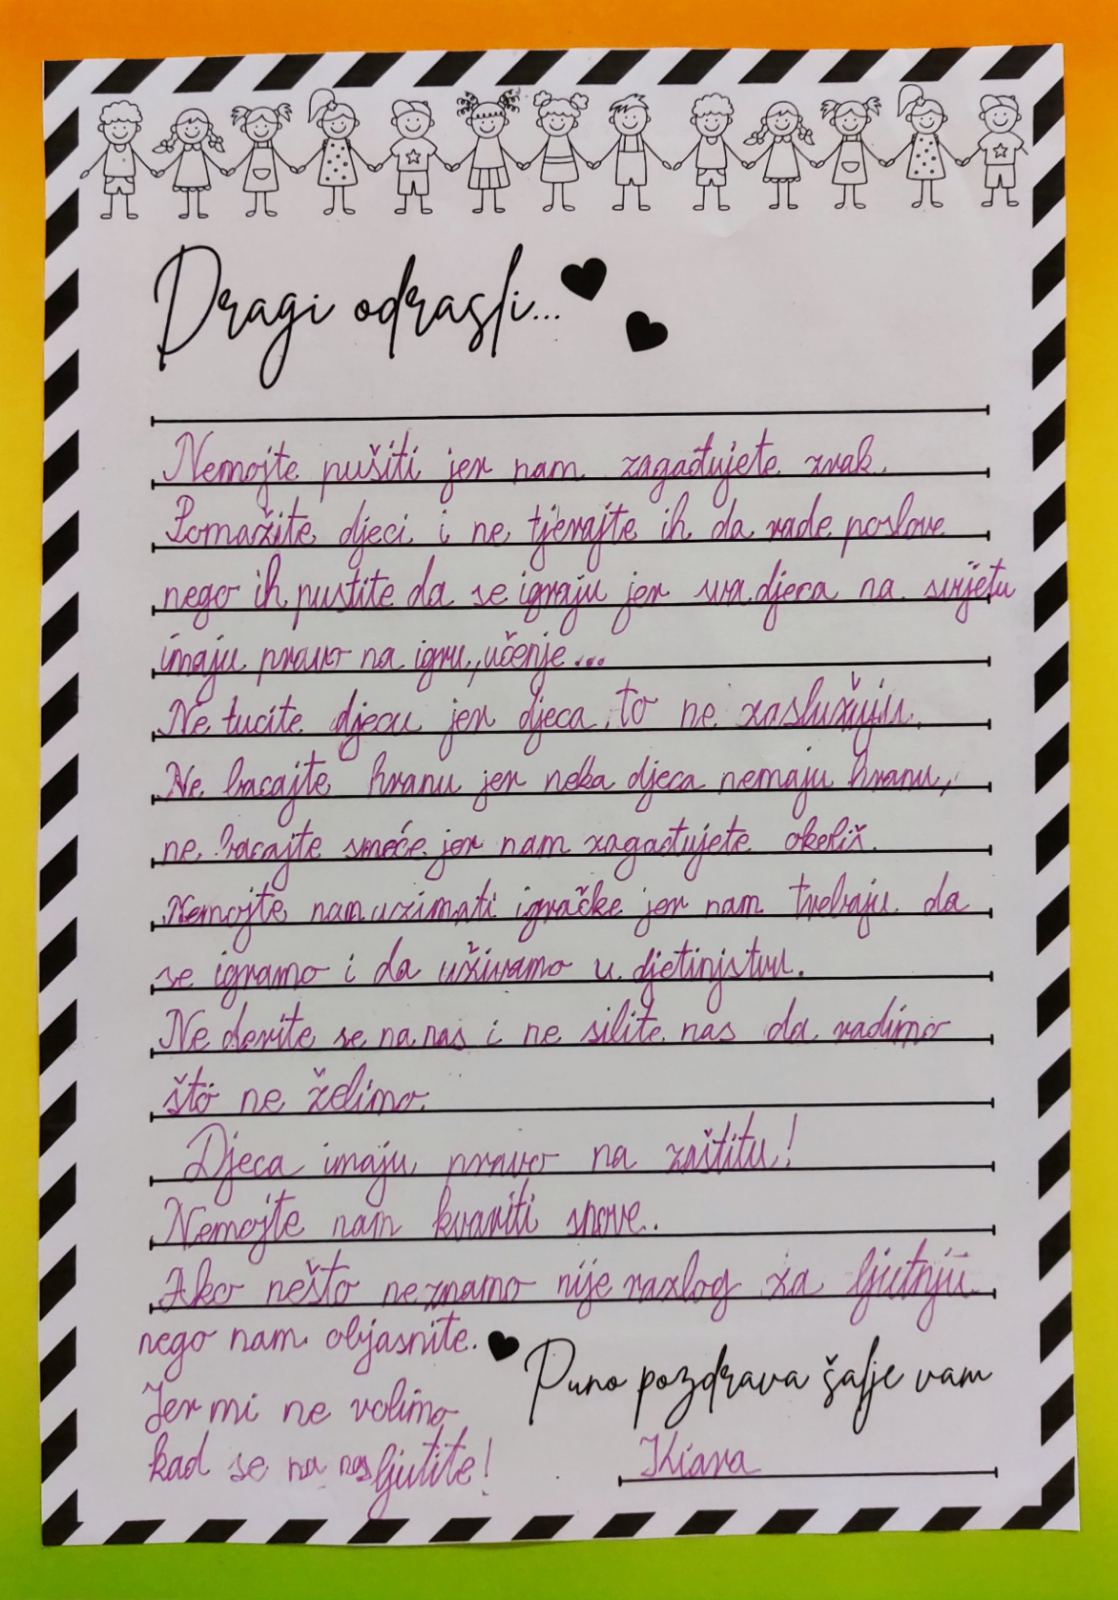 Dragi odrasli...
Nemojte pušiti jer nam zagađujete zrak.
Pomažite djeci i ne tjerajte ih da rade poslove
nego ih pustite da se igraju jer sva djeca na svijetu
imaju pravo na igru, učenje...
Ne tucite djecu jer djeca to ne zaslužuju.
Ne bacajte hranu jer neka djeca nemaju hranu,
ne bacajte smeće jer nam zagađujete okoliš.
Nemojte nam uzimati igračke jer nam trebaju da
se igramo i da uživamo u djetinjstvu.
Ne derite se na nas i ne silite nas da radimo
što ne želimo.
Djeca imaju pravo na zaštitu!
Nemojte nam kvariti snove.
Ako nešto neznamo nije razlog za ljutnju
nego nam objasnite.
Puno pozdrava šalje vam
Jer mi ne volimo
kad se na nas ljutite!
Kiara